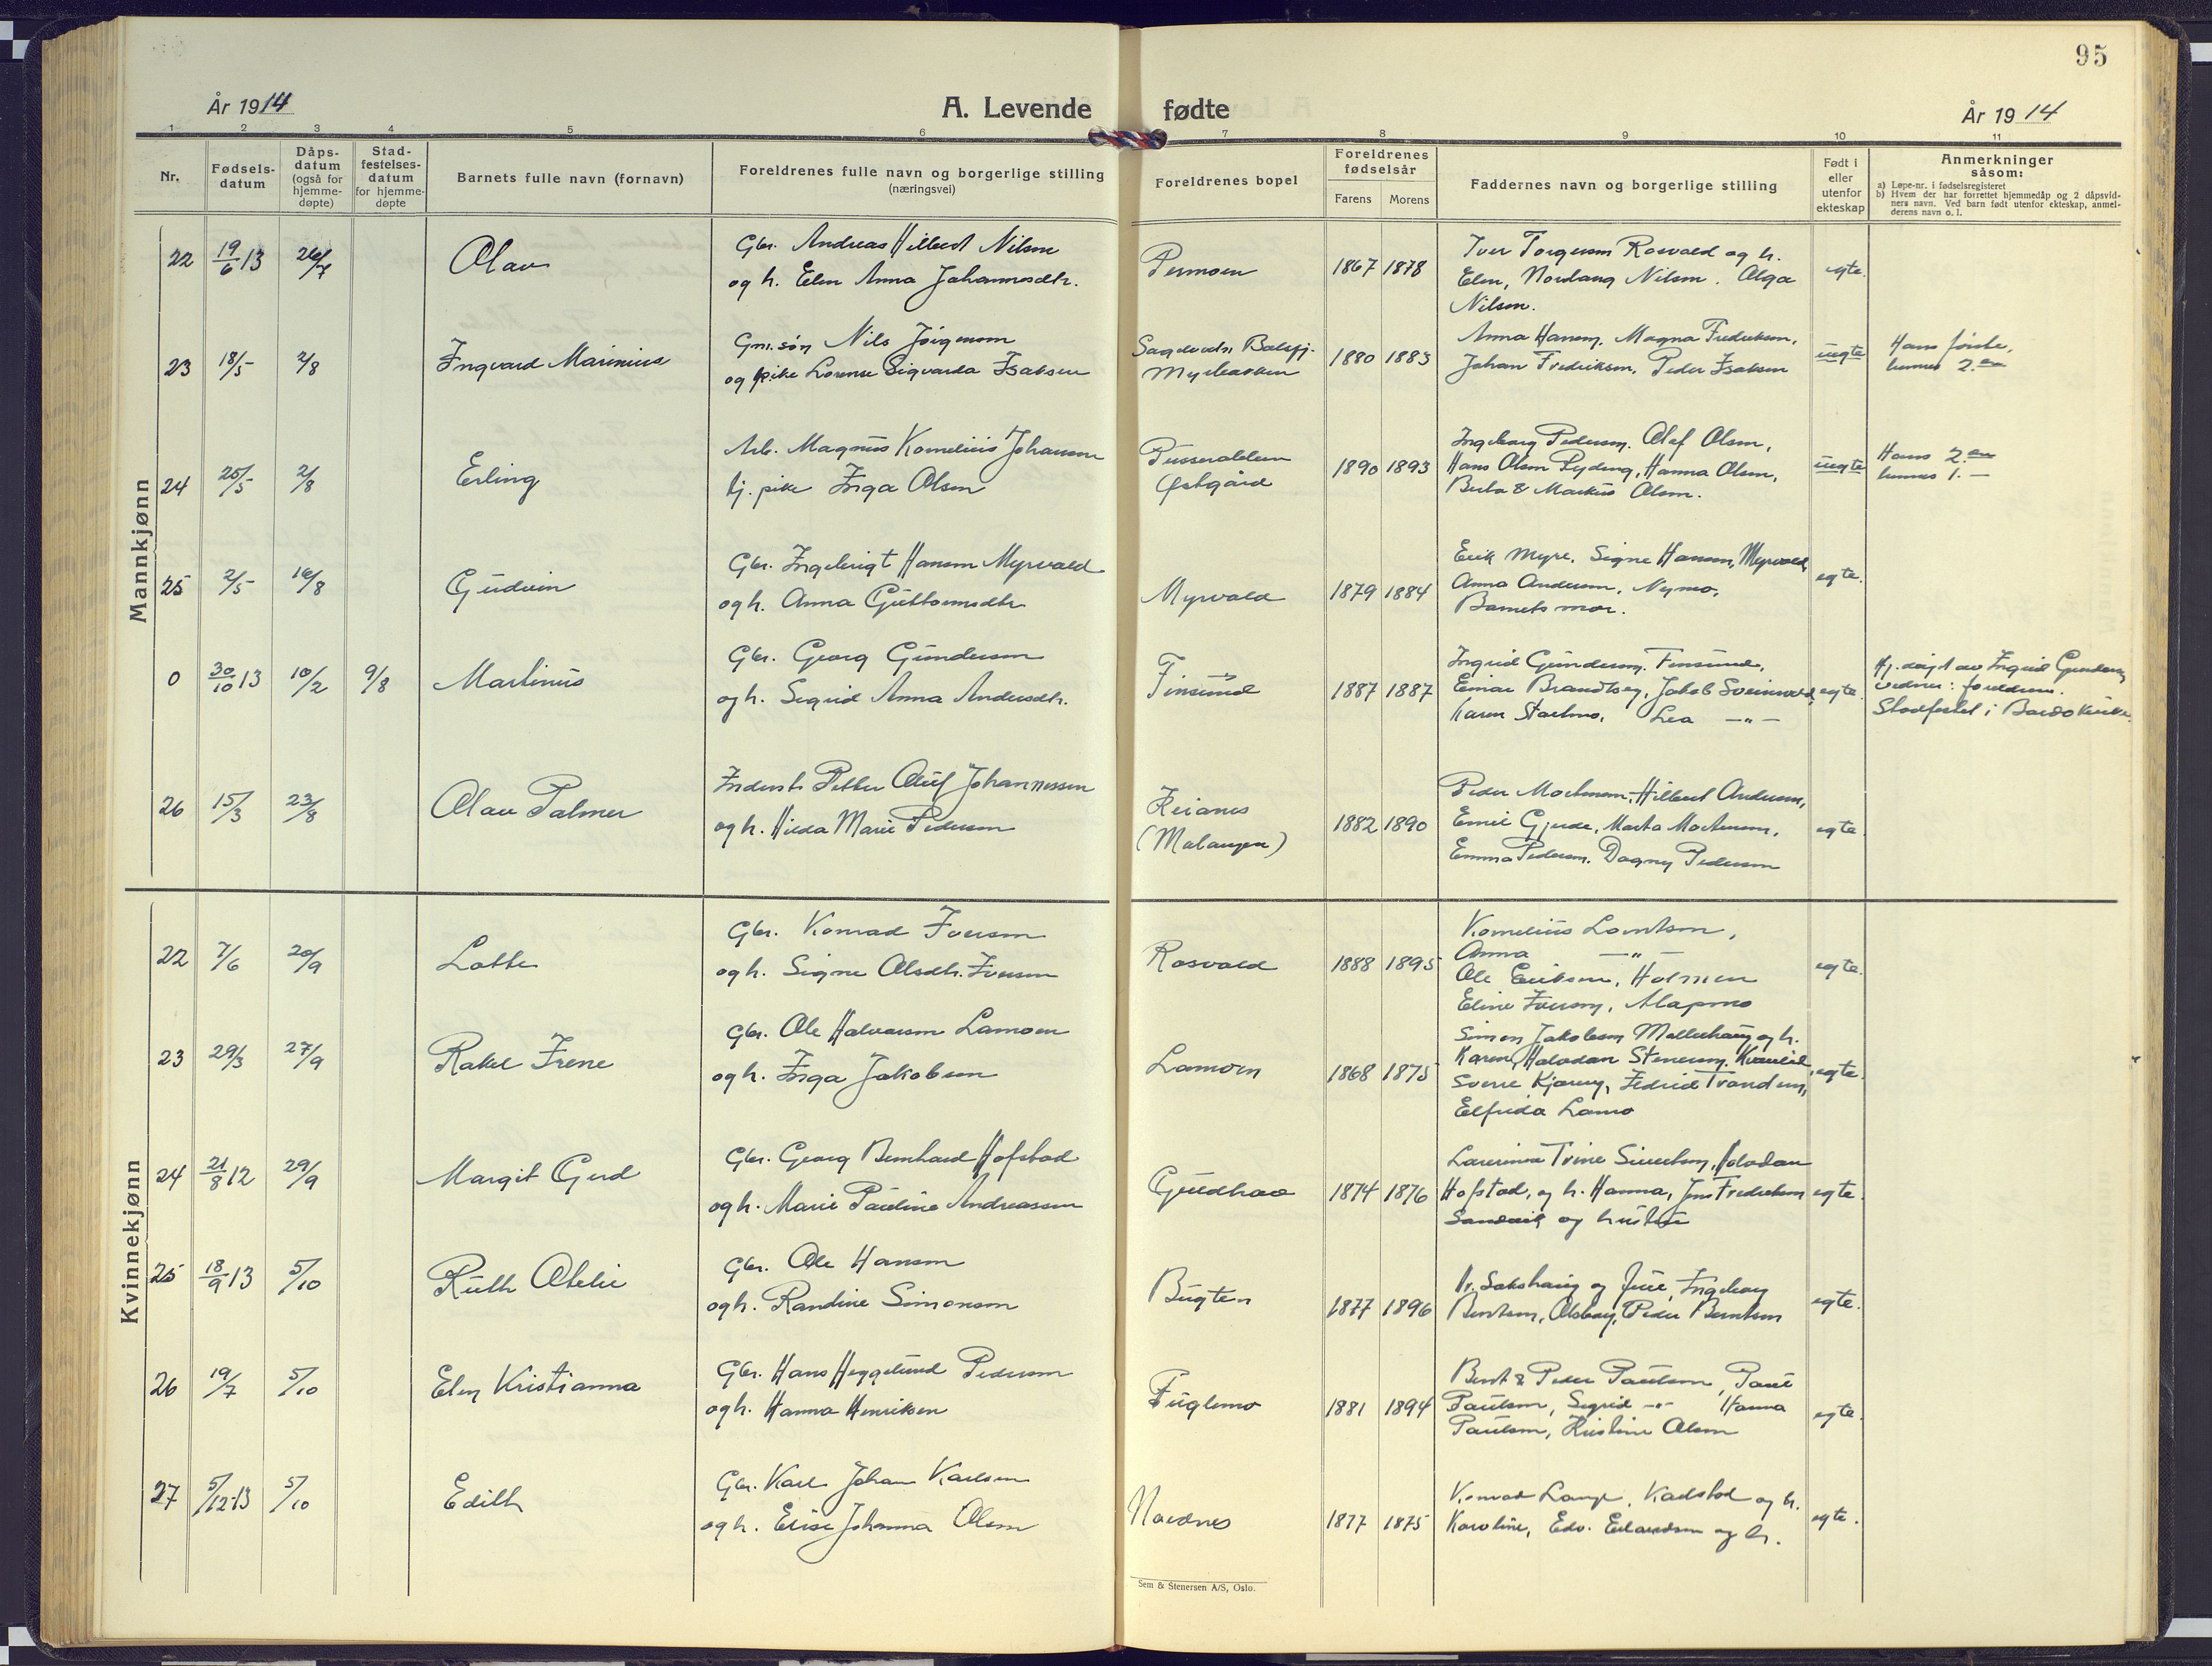 95
År 1914
A. Levende fødte
År 1914
1 2 3 4 5 6 7 8 9 10 11
Nr.
Fødsels-
datum
Dåps-
datum
(også for
hjemme-
døpte)
Stad-
festelses-
datum
for hjemme-
døpte
Barnets fulle navn (fornavn)
Foreldrenes fulle navn og borgerlige stilling
(næringsvei)
Foreldrenes bopel
Foreldrenes
fødselsår
Farens Morens
Faddernes navn og borgerlige stilling
Født i
eller
utenfor
ekteskap
Anmerkninger
såsom:
a) Løpe-nr. i fødselsregisteret
b) Hvem der har forrettet hjemmedåp og 2 dåpsvid-
ners navn. Ved barn født utenfor ekteskap, anmel-
derens navn o. l.
Mannkjønn
22 19/6 13 26/7 Olav
Gbr. Andreas Hilbert Nilsen
og h. Elen Anna Johannesdtr.
Permoen 1867 1878
Iver Torgersen Rosvold og h.
Elen, Nordang Nilsen. Olga
Nilsen.
egte.
23 18/5 2/8 Ingvard Marinius
Gm. søn Nils Jörgensen
og pike Lorense Sigvarda Isaksen
Balsfj.
Myrbakken
1880 1883
Anna Hansen, Magna Fredriksen,
Johan Fredriksen, Peder Isaksen
uegte
Hans første,
hennes 2.en
24 25/5 2/8 Erling
Arb. Magnus Kornelius Johansen
tj. pike Inga Olsen
Østgård
1890 1893
Ingeborg Pedersen. Olaf Olsen,
Hans Olsen Rydeng, Hanna Olsen,
Berta & Markus Olsen.
uegte
Hans 2.en
hennes 1. —
25 2/5 16/8 Gudvin
Gbr. Ingebrigt Hansen Myrvold
og h. Anna Guttormsdtr
Myrvold 1879 1884
Erik Myre, Signe Hansen, Myrvold,
Anna Andersen, Nymo,
Barnets mor.
egte.
0 30/10 13 10/2 9/8 Martinus
Gbr. Georg Gundersen
og h. Sigrid Anna Andersdtr.
Finsund 1887 1887
Ingrid Gundersen, Finsund,
Einar Brandtseg, Jakob Sveinvold,
Karen Stoelmo, Lea —"—
egte.
Hj. døpt av Ingrid Gundersen
vidner: foreldrene.
Stadfestet i Bardo kirke.
26 15/3 23/8 Olav Palmer
Inderst Petter Oluf Johannessen
og h. Hilda Marie Pedersen
Keianes
(Malangen)
1882 1890
Peder Mortensen, Hilbert Andersen,
Emil Gjerde, Marta Mortensen,
Emma Pedersen, Dagny Pedersen
egte.
Kvinnekjønn
22 7/6 20/9 Lotte
Gbr. Konrad Iversen
og h. Signe Olsdtr. Iversen
Rosvold 1888 1895
Kornelius Lorntsen,
Anna —"—
Ole Eriksen, Holmen
Eline Iversen, Alapmo
egte.
23 29/3 27/9 Rakel Irene
Gbr. Ole Halvorsen Lamoen
og h. Inga Jakobsen
Lamoen 1868 1875
Simon Jakobsen Mellerhaug og h.
Karen, Halvdan Stenersen, Kvanlid,
Sverre Kjæreng, Fedrid Trondsen,
Elfrida Lamo
egte.
24 21/8 12 29/9 Margit Gerd
Gbr. Georg Bernhard Hofstad
og h. Marie Pauline Andreassen
Guldhav 1874 1876
Trine Sivertsen, Halvdan
Hofstad, og h. Hanna, Jens Fredriksen
Sandvik og hustru
egte.
25 18/9 13 5/10 Ruth Otelie
Gbr. Ole Hansen
og h. Randine Simonsen
Bugten 1877 1896
Dr. Sakshaug og frue, Ingeborg
Berntsen, Olsborg, Peder Berntsen
egte.
26 19/7 5/10 Elen Kristianna
Gbr. Hans Heggelund Pedersen
og h. Hanna Henriksen
Fuglemo 1881 1894
Bernt & Peder Paulsen, Paul
Paulsen, Sigrid —"— Hanna
Paulsen, Kristine Olsen
egte.
27 5/12 13 5/10 Edith
Gbr. Karl Johan Karlsen
og h. Elise Johanna Olsen
Nordnes 1877 1875
Konrad Lange, Karlstad og h.
Karoline, Edv. Erlandsen og h.
egte.
Sem & Stenersen A/S, Oslo.